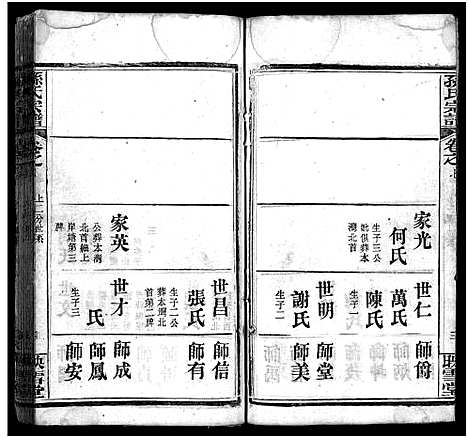 孫氏宗譜
卷之七
三
映雪堂
家光
生子三公
妣俱葬本
灣北首
何氏
世仁
萬氏
陳氏
生子一
師爵
世明
謝氏
生子二
師堂
師美
孫氏宗譜
卷之
家英
公葬本灣
北首細上
岸塘第三
牌
世昌
生子二公
葬本灣北
首第二牌
張氏
師信
師有
世才
氏
生子三
師成
師鳳
師安
映雪堂